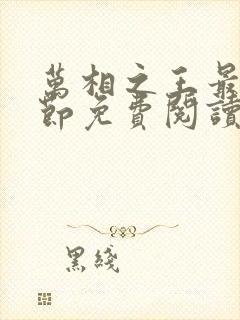 萬相之王最
節免費閱讀
黑綫